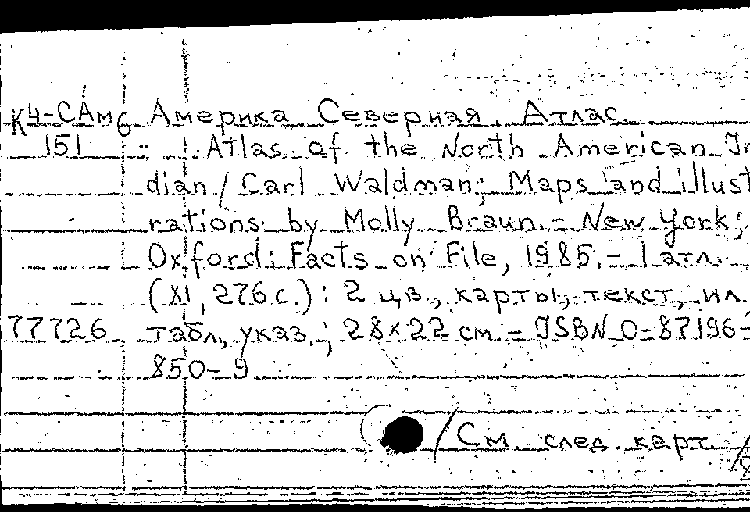 К4-САм6 Америка Северная. Атлас.
151 Atlas of the North American In
dian / Carl Waldman; Maps and illust
rations by Molly Braun. - New York;
Oxford: Facts on File, 1985. - 1 атл.
(XI, 276 с.): 2 цв., карты, текст, ил.
77726 табл., указ.; 28×22 см - ISBN 0-87196-
850-9
/См. след. карт. /